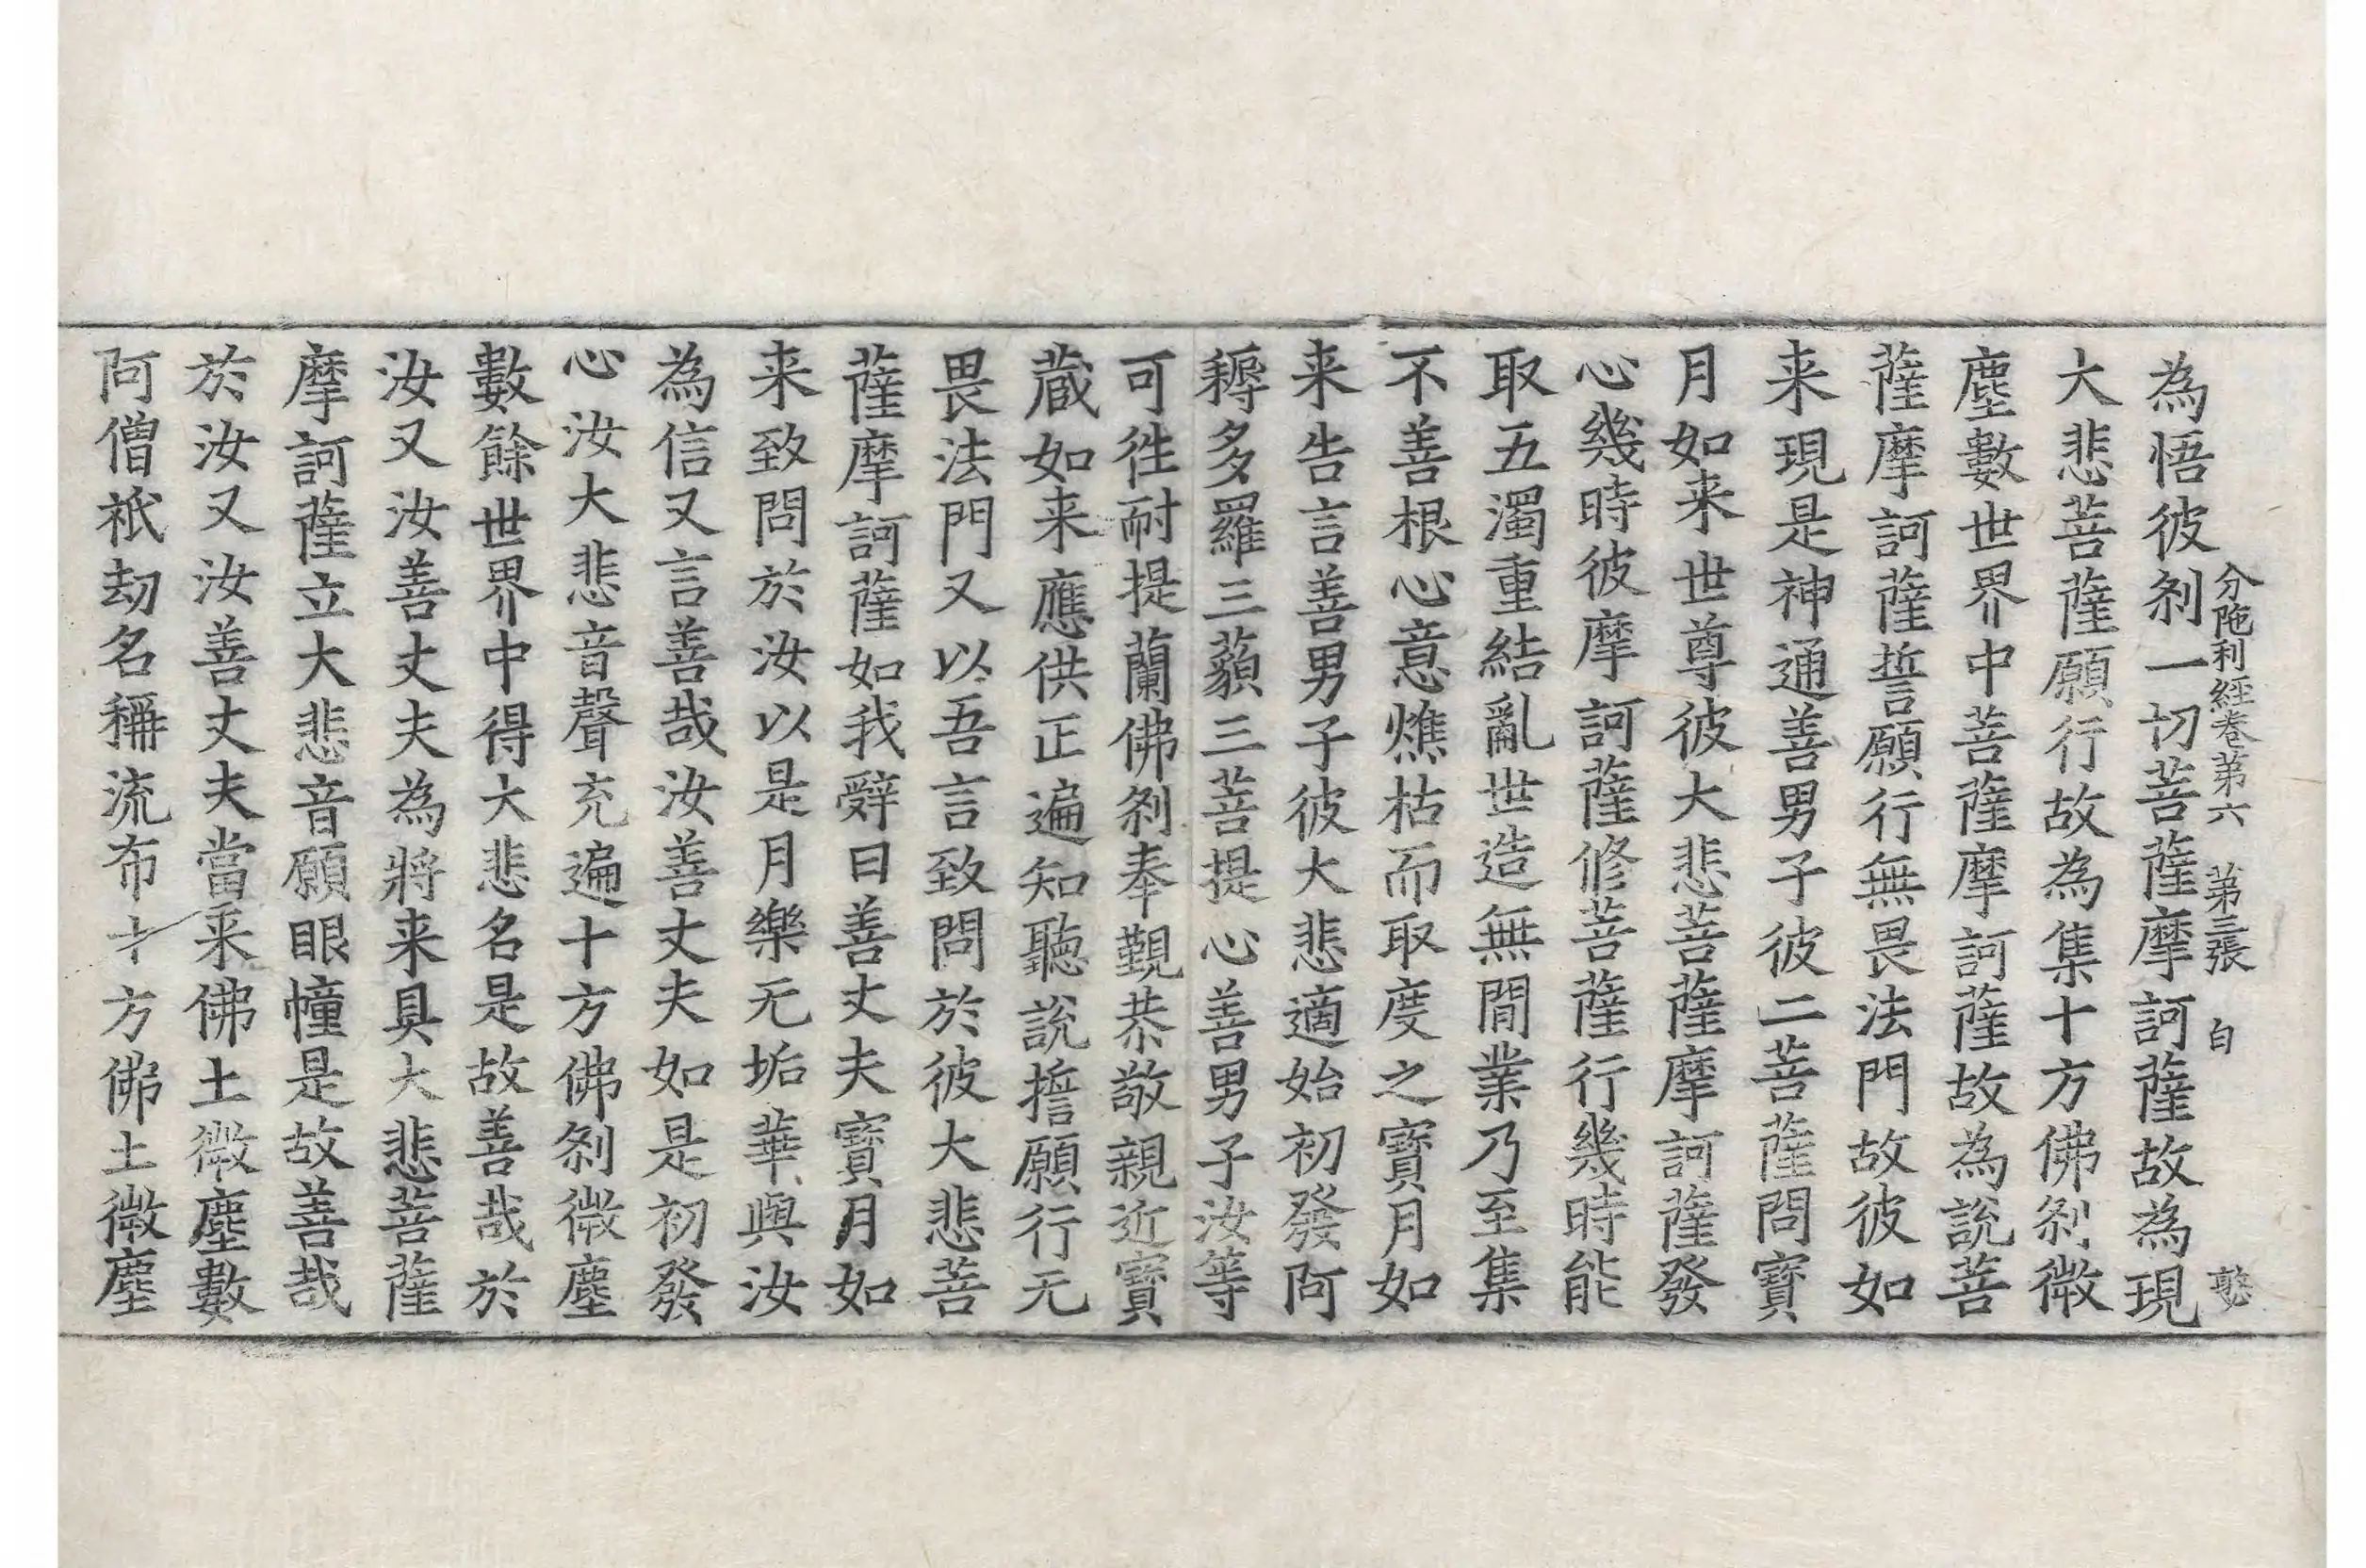 分陁利經卷第六　第三張　白
為悟彼刹一切菩薩摩訶薩故為現
大悲菩薩願行故為集十方佛刹微
塵數世界中菩薩摩訶薩故為說菩
薩摩訶薩誓願行無畏法門故彼如
来現是神通善男子彼二菩薩問寶
月如来世尊彼大悲菩薩摩訶薩發
心幾時彼摩訶薩修菩薩行幾時能
取五濁重結亂世造無間業乃至集
不善根心意燋枯而取度之寶月如
来告言善男子彼大悲適始初發阿
耨多羅三藐三菩提心善男子汝等
可徃耐提蘭佛刹奉覲恭敬親近寶
蔵如来應供正遍知聽說擔願行无
畏法門又以吾言致問於彼大悲菩
薩摩訶薩如我辤曰善丈夫寶月如
来致問於汝以是月樂无垢華與汝
為信又言善哉汝善丈夫如是初發
心汝大悲音聲充遍十方佛刹微塵
數餘世界中得大悲名是故善哉於
汝又汝善丈夫為將来具大悲菩薩
摩訶薩立大悲音願眼幢是故善哉
於汝又汝善丈夫當来佛土微塵數
阿僧祇劫名稱流布十方佛土微塵